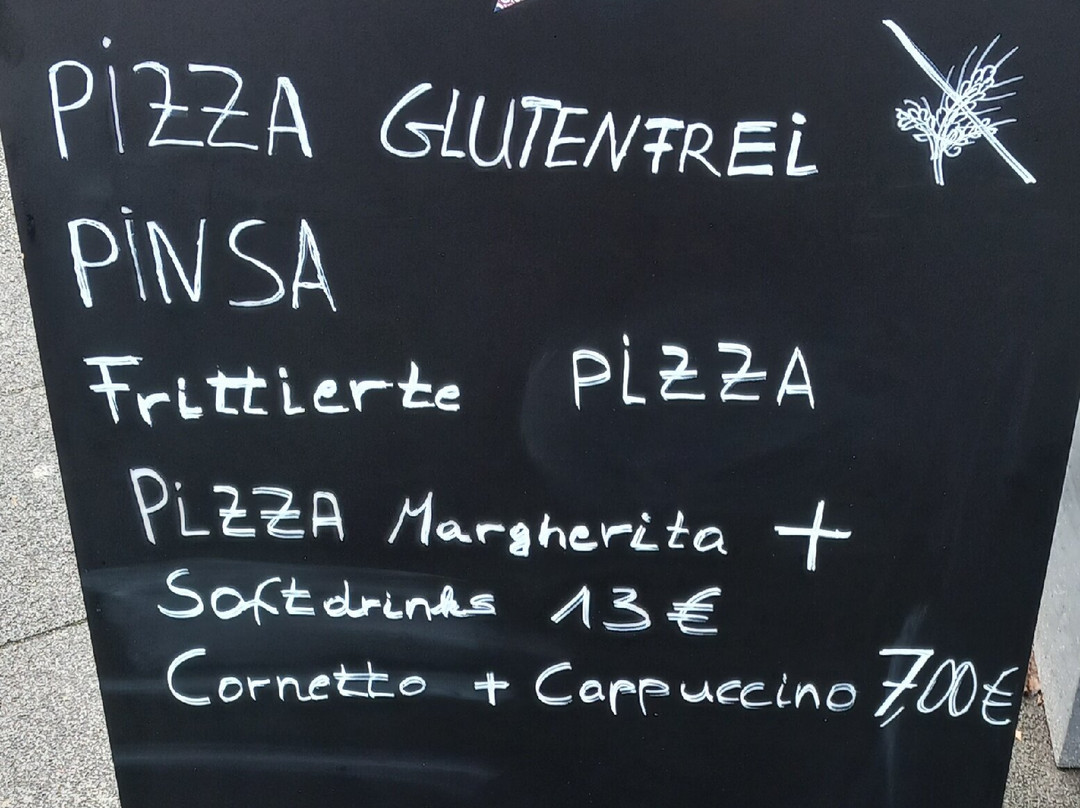 PiZZA GLUTENFREi
PiNSA
Frittierte PiZZA
PiZZA Margherita +
Softdrinks 13 €
Cornetto + Cappuccino 7,00€